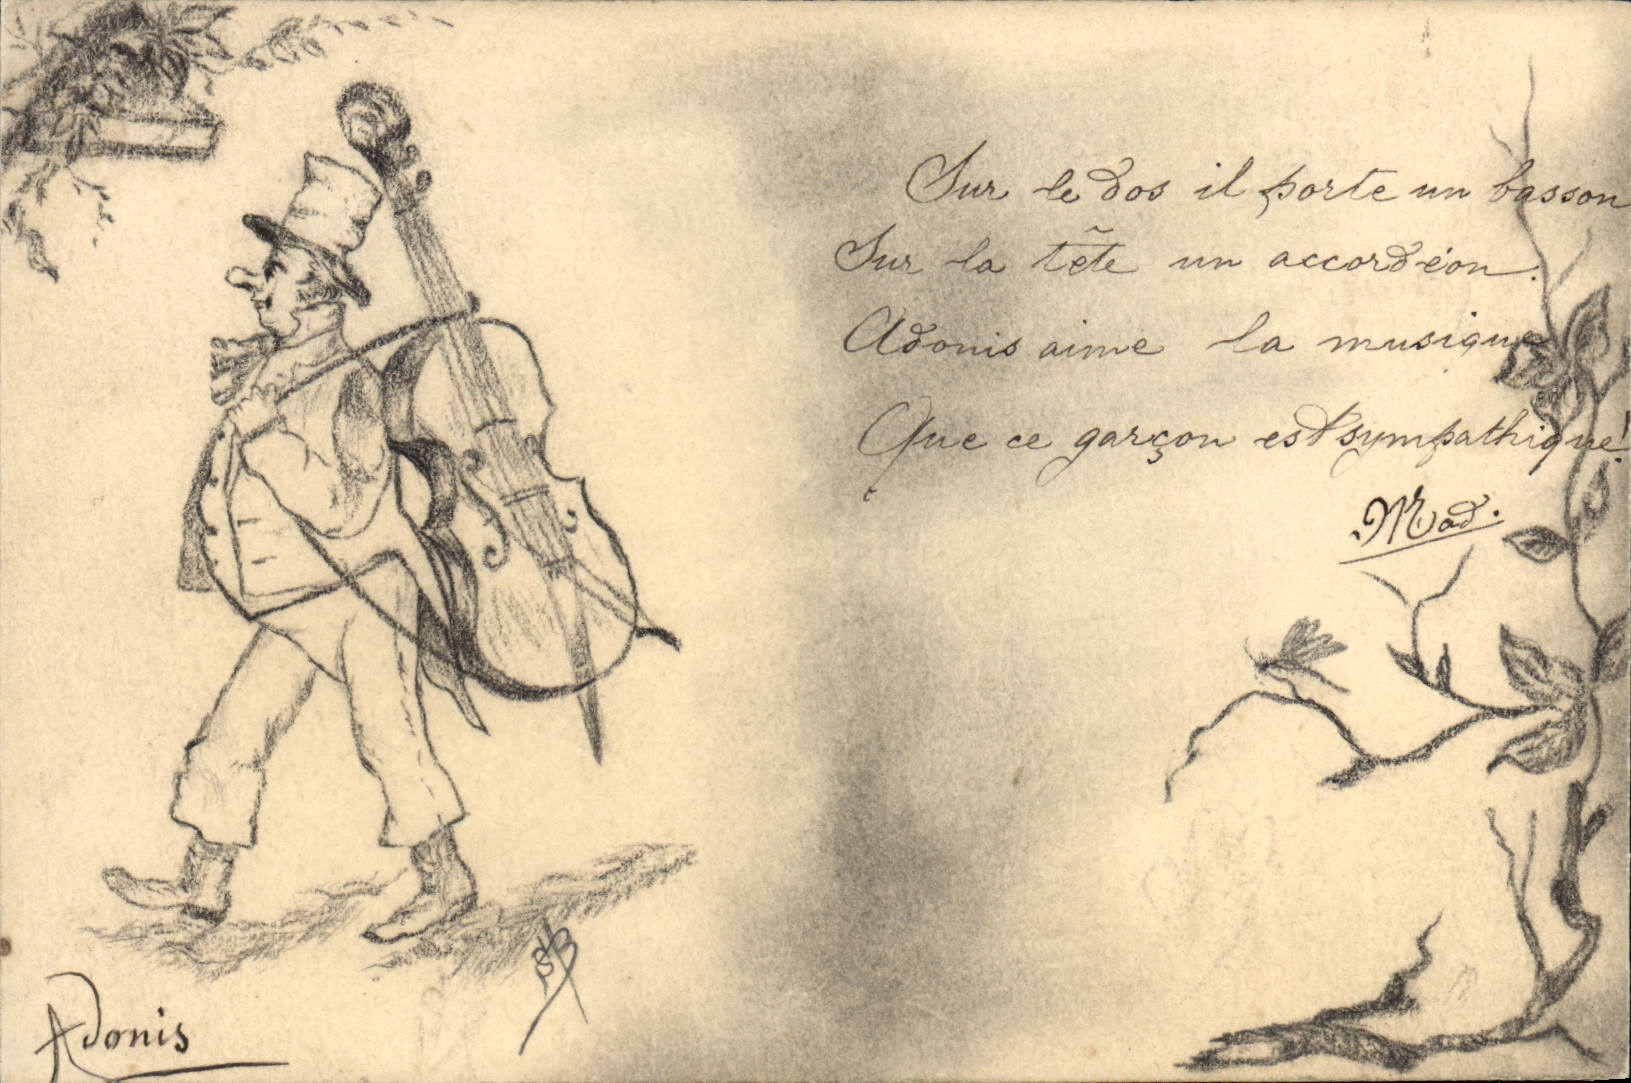 Sur le dos il porte un basson
Sur la tête un accordéon.
Adonis aime la musique
Que ce garçon est sympathique!
Mad.
Adonis